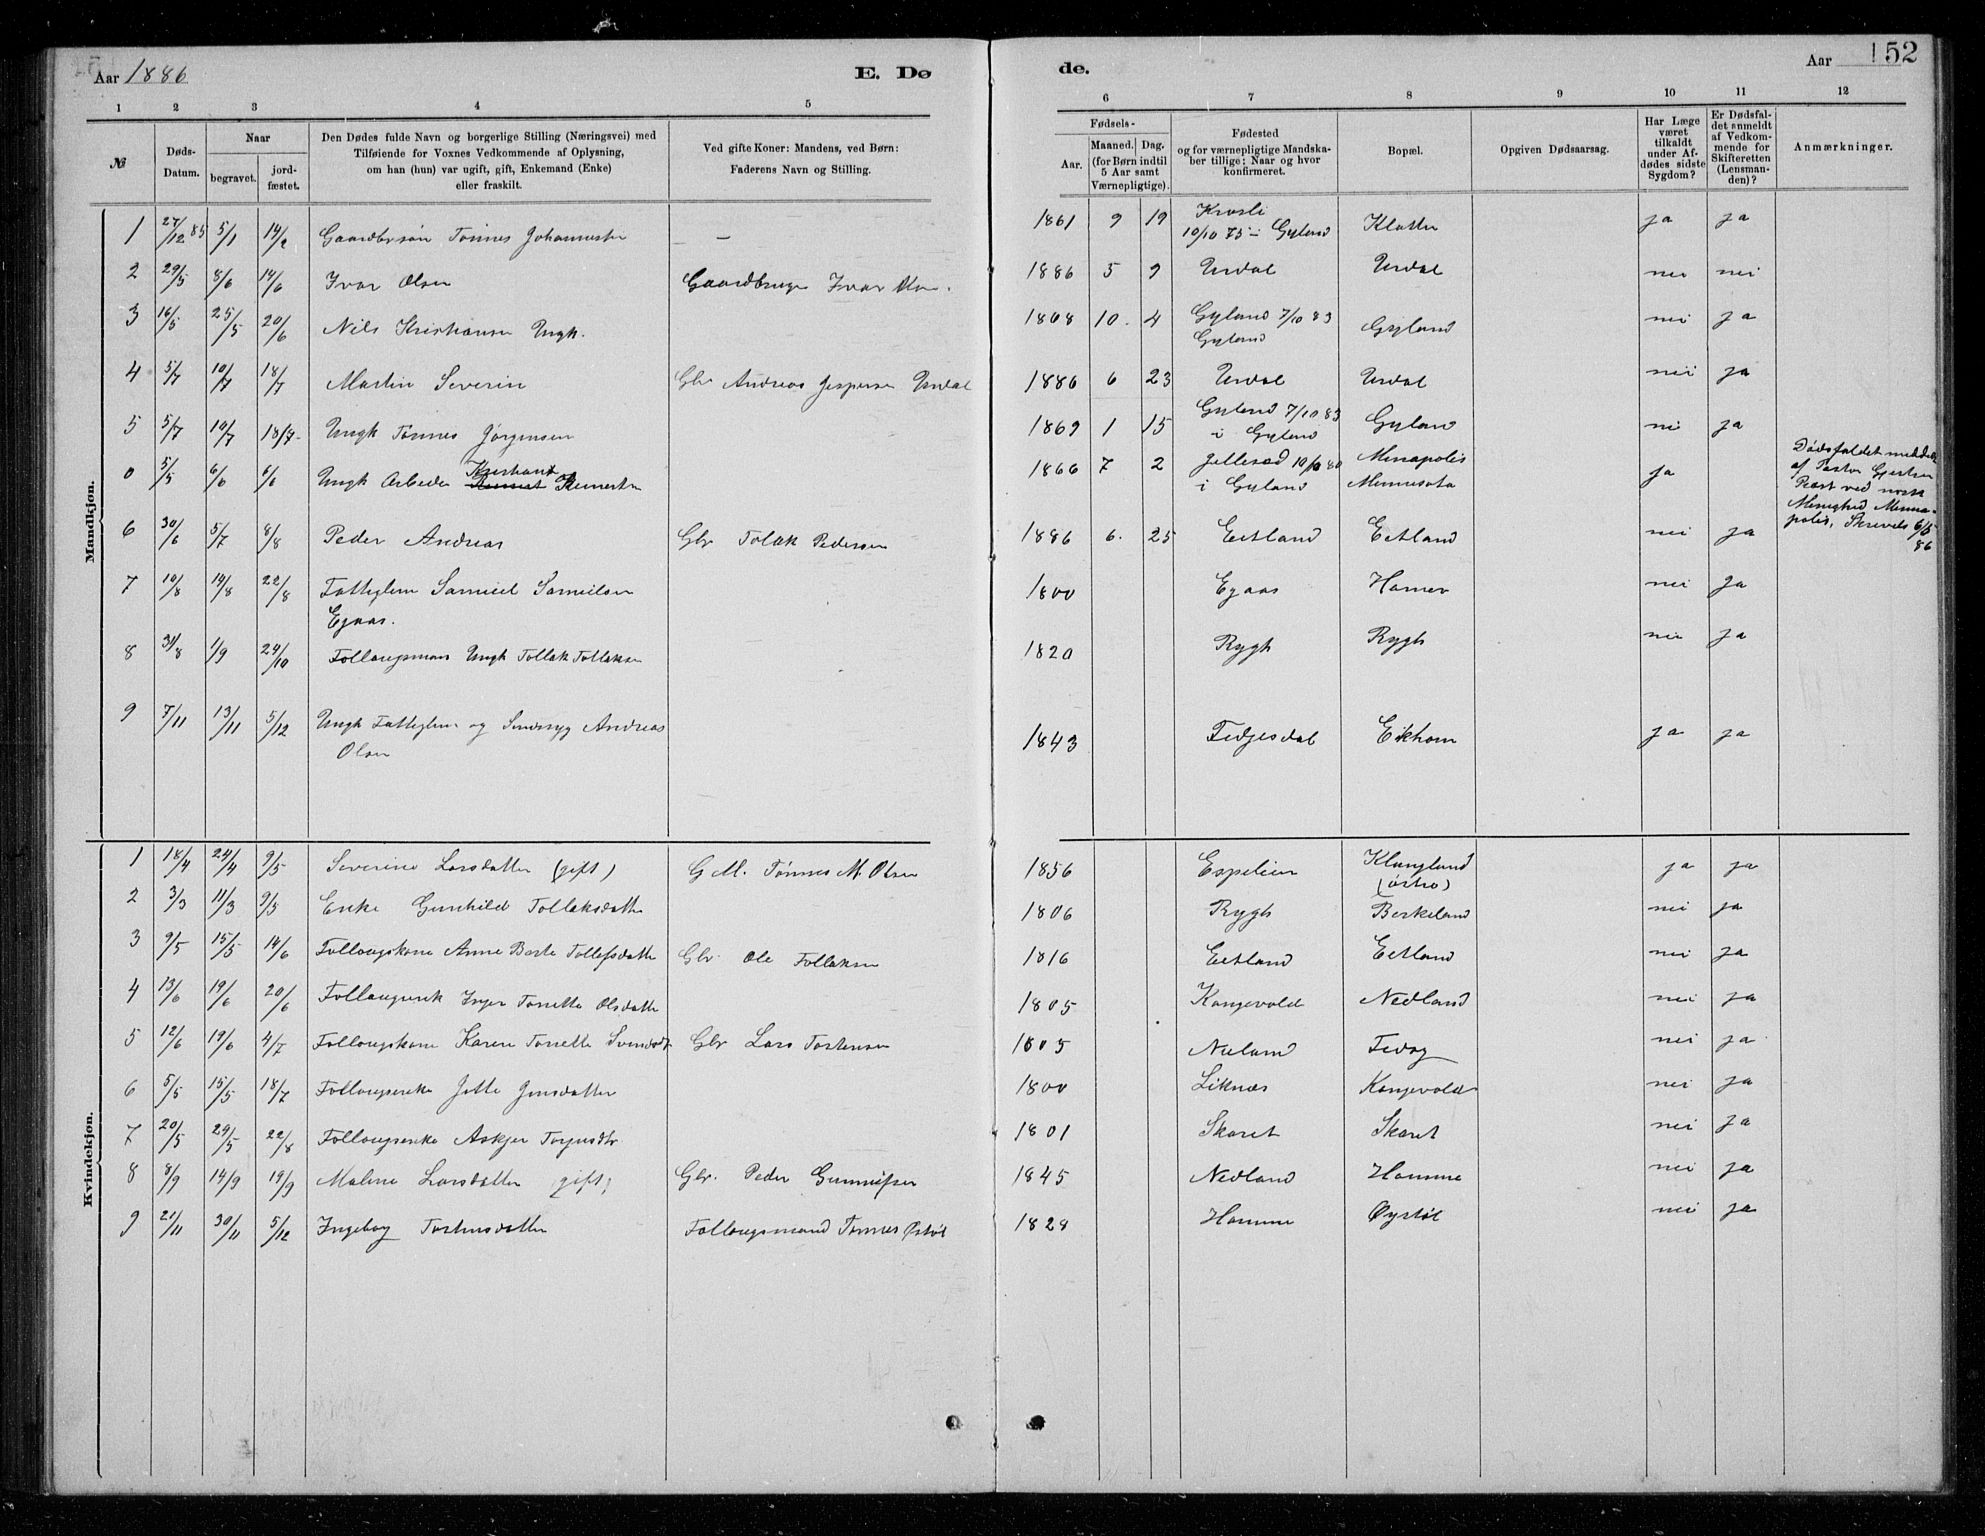 Aar 1886
E. Dø
de.
Aar
152
1 2 3 4 5 6 7 8 9 10 11 12
№
Døds-Datum.
Naar
begravet.
jord-fæstet.
Den Dødes fulde Navn og borgerlige Stilling (Næringsvei) med
Tilføiende for Voxnes Vedkommende af Oplysning,
om han (hun) var ugift, gift, Enkemand (Enke)
eller fraskilt.
Ved gifte Koner: Mandens, ved Børn:
Faderens Navn og Stilling.
Fødsels-
Aar.
Maaned. Dag.
(for Børn indtil
5 Aar samt
Værnepligtige).
Fødested
og for værnepligtige Mandska-
ber tillige: Naar og hvor
konfirmeret.
Bopæl.
Opgiven Dødsaarsag.
Har Læge
været
tilkaldt
under Af-
dødes sidste
Sygdom?
Er Dødsfal-
det anmeldt
af Vedkom-
mende for
Skifteretten
(Lensman-
den)?
Anmærkninger.
Mandkjøn.
1 27/12 85 5/1 14/2 Gaardbrsøn Tønnes Johannesen — 1861 9 19 Krosli 10/10 75 i Gyland Klatten ja ja
2 29/5 8/6 14/6 Ivar Olsen Gaardbruger Ivar 1886 5 9 Urdal Urdal nei nei
3 16/5 25/5 20/6 Nils Kristiansen Ungk. 1868 10. 4 Gyland 7/10 83 Gyland Gyland nei ja
4 5/7 10/7 18/7 Martin Severin Gbr Andreas Jespersen Urdal 1886 6 23 Urdal Urdal nei ja
5 5/7 10/7 18/7 Ungk Tønnes Jørgensen 1869 1 15 Gyland 7/10 83 i Gyland Gyland nei ja
0 5/5 6/6 6/6 Ungk Arbeider Kristian Reinertsen 1866 7 2 10/10 80 i Gyland Minapolis Minnusota ja
Dødsfaldet meddelt
af Pastor Gjertsen
Præst ved norsk
Menighed Minna-
polis, Skrivels 6/5
86
6 30/6 5/7 8/8 Peder Andreas Gbr Tolak Pedersen 1886 6. 25 Eetland Eetland nei ja
7 10/8 14/8 22/8 Fattiglem Samuel Samuelsen
Egaas.
1800 Egaas Hamer nei ja
8 31/8 1/9 24/10 Follaugsmans Ungk Tollak Tollaksen 1820 Rygh Rygh nei ja
9 7/11 13/11 5/12 Ungk Fattiglem og Sindssyg Andreas
Olsen
1843 Fedjesdal Eikhom ja ja
Kvindekjøn.
1 18/4 24/4 9/5 Severine Larsdatter (gift) G M. Tønnes M. Olsen 1856 Espeleien Klungland (østre) ja ja
2 3/3 11/3 9/5 Enke Gunhild Tollaksdatter 1806 Rygh Berkeland nei ja
3 9/5 15/5 14/6 Follougskone Anne Berte Tollefsdatter Gbr. Ole Follaksen 1816 Eetland Eetland nei ja
4 13/6 19/6 20/6 Follougsenk Inger Tonette Olsdatter 1805 Kongevold Nedland nei ja
5 12/6 19/6 4/7 Follougskone Karen Tonette Svendsdr Gbr Lars Tostensen 1805 Nuland nei ja
6 5/5 15/5 18/7 Follougsenke Jette Jensdatter 1800 Liknæs Kongevold nei ja
7 20/5 29/5 22/8 Follougsenke Askjer Torjusdtr 1801 Skaret Skaret nei ja
8 8/9 14/9 19/9 Malene Larsdatter (gift) Gbr. Peder Gunnufsen 1845 Nedland Hamme nei ja
9 21/11 30/11 5/12 Ingeborg Tostensdatter Follougsmand Tønnes Østøl 1828 Hamme Øystøl nei ja